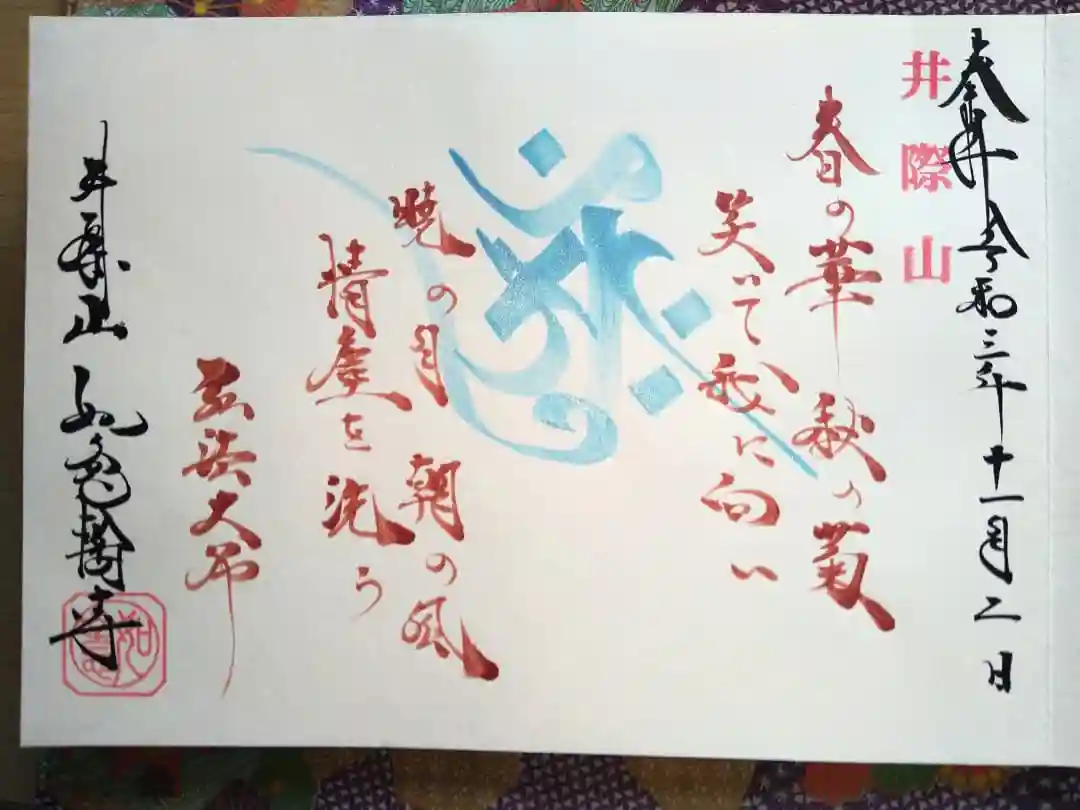 奉拝 令和三年十一月二日
井際山
春の華 秋の菊
笑いて 我に向い
暁の月 朝の風
情塵を洗う
弘法大師
井際山 如意輪寺